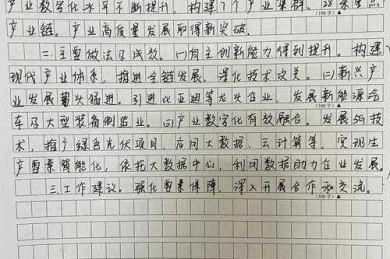 产业数字化水平不断提升，构建7个产业集群、28条重点
产业链。产业高质量发展取得新突破。
二、主要做法及成效。(一)自主创新能力得到提升。构建
现代产业体系，推进全链发展，深化技术攻关。(二)新兴产
业发展蓄头强进。引进比亚迪等龙头企业，发展新能源汽
车及大型装备制造业。(三)产业数字化有效融合。发展的技
术，推广绿色光伏项目，启用大数据、云计算等，实现生
产要素智能化，依托大数据中心，利用数据助力企业发展。
三、工作建议。强化要素保障，深入开展合作和交流。